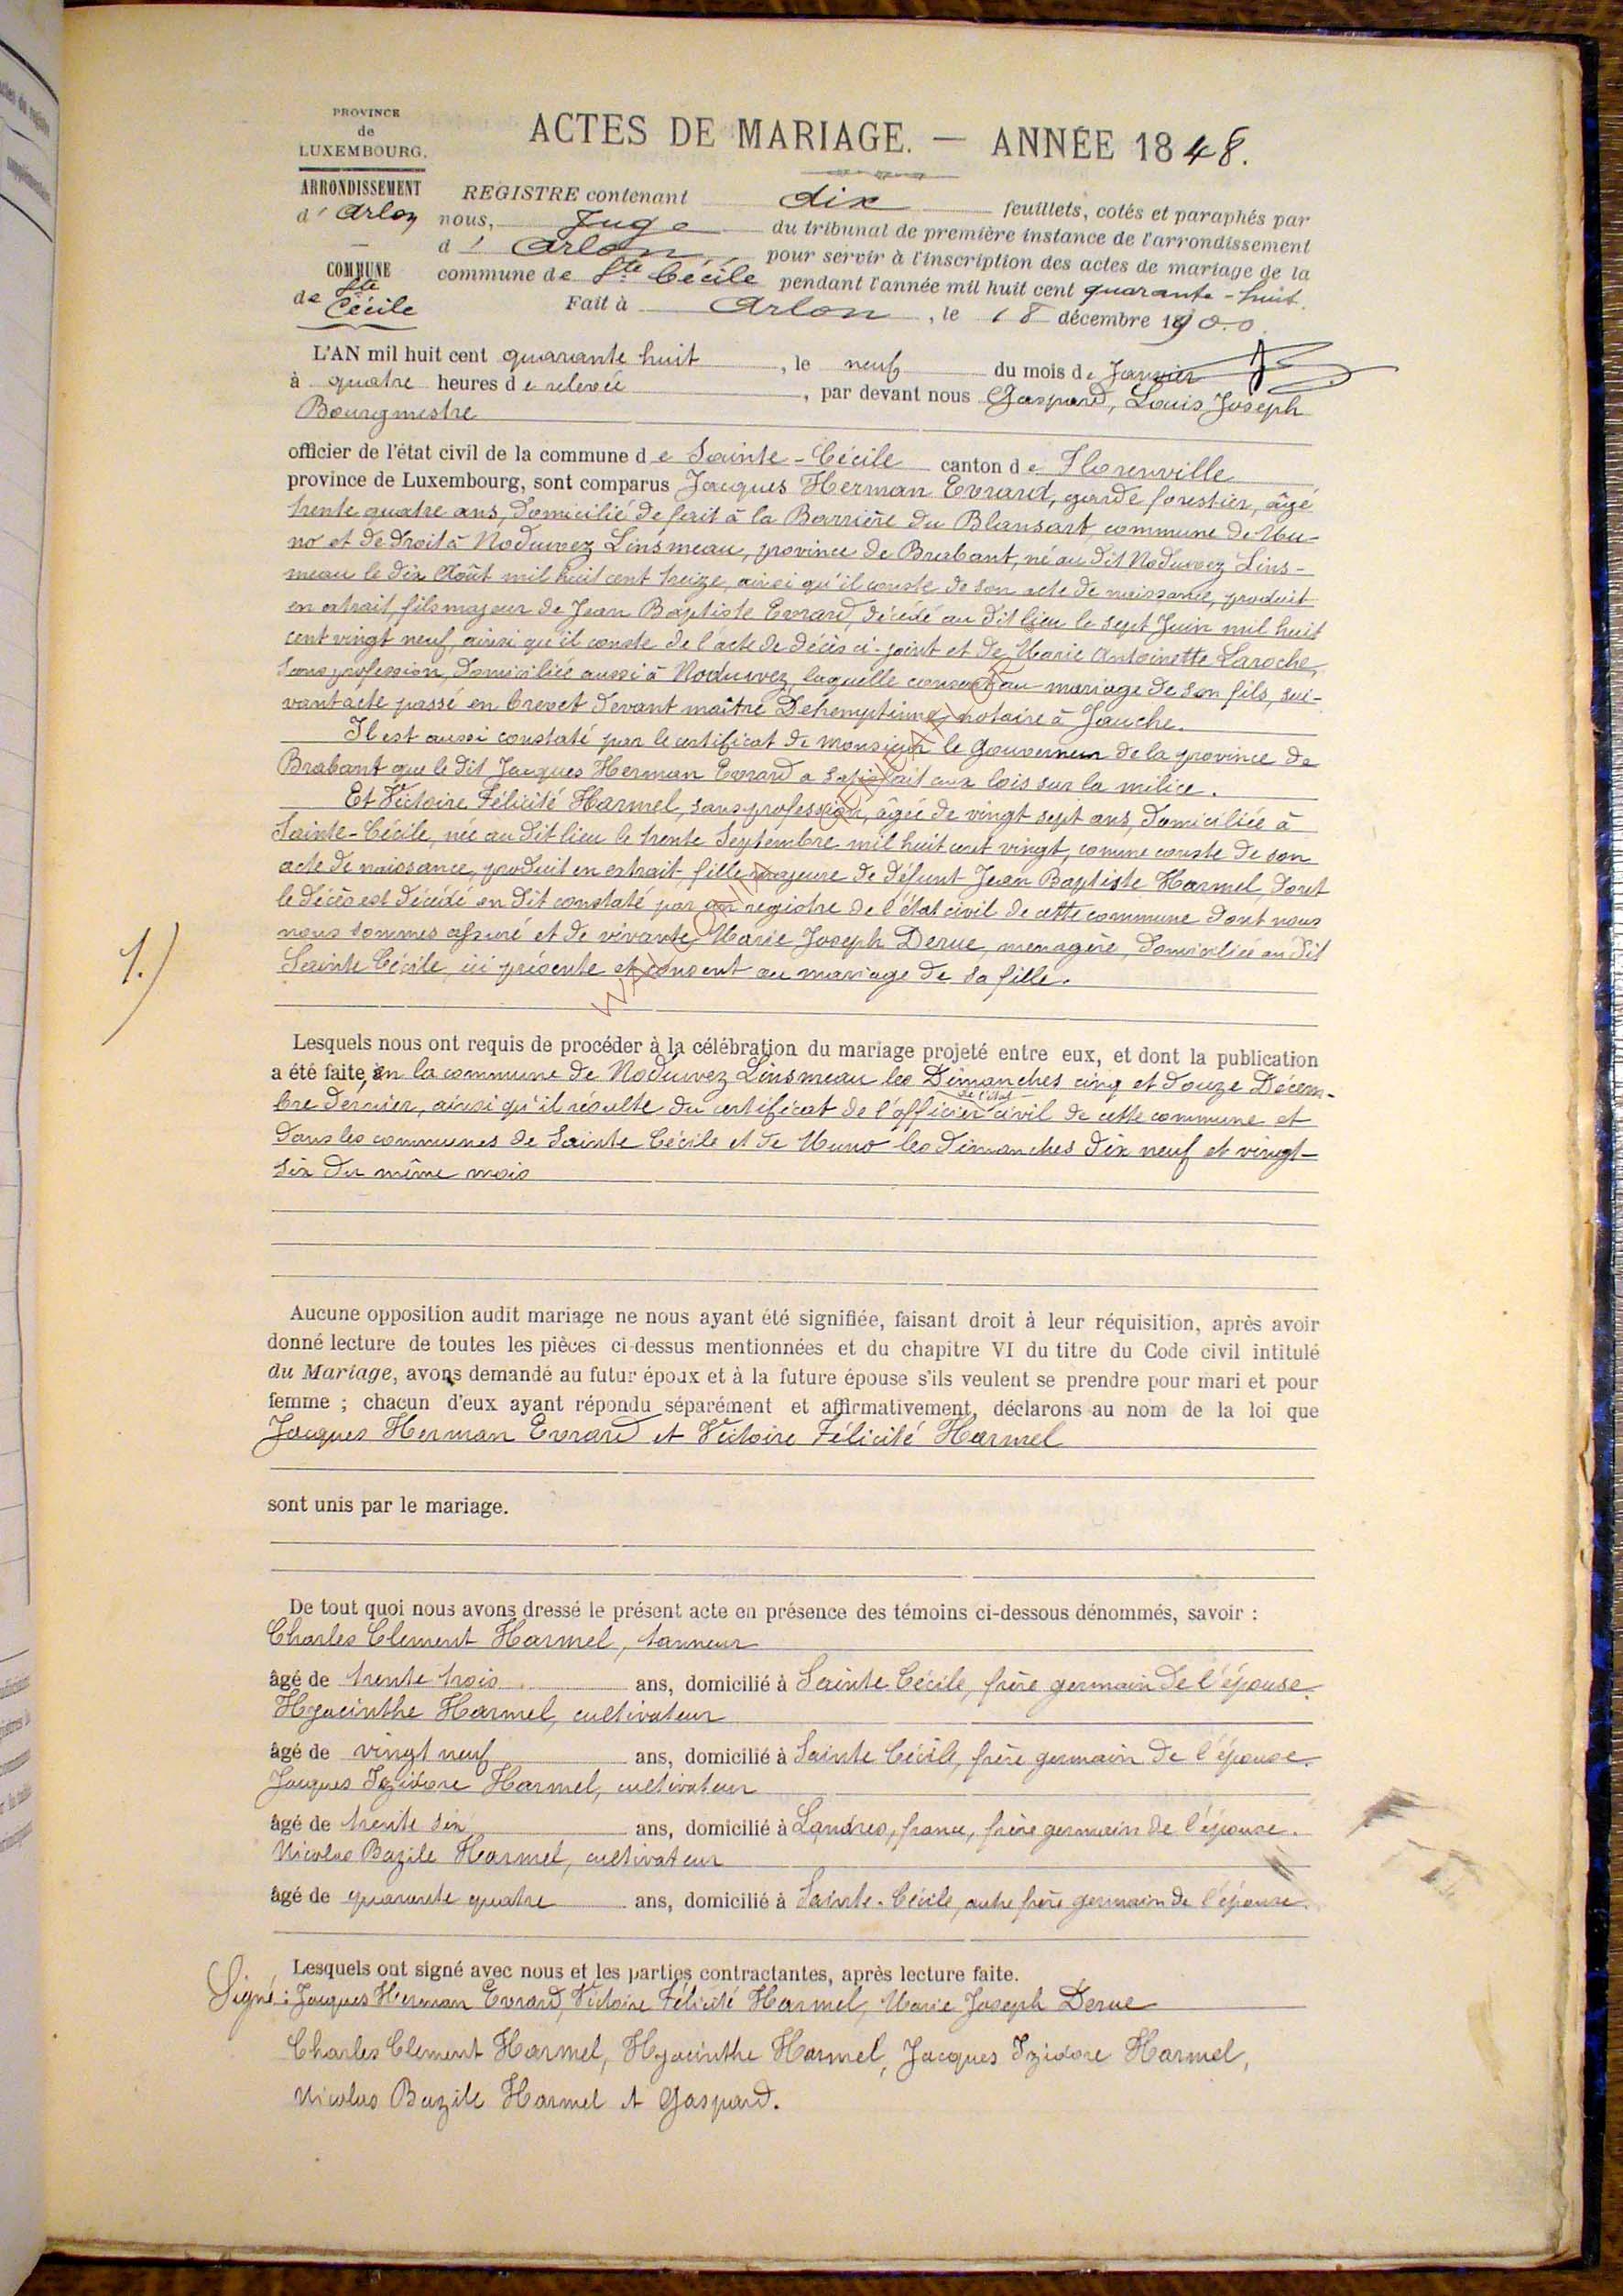 PROVINCE
de
LUXEMBOURG.
ARRONDISSEMENT
d'Arlon
COMMUNE
de Ste
Cécile
ACTES DE MARIAGE. — ANNÉE 1848.
REGISTRE contenant dix feuillets, cotés et paraphés par
nous, Juge du tribunal de première instance de l'arrondissement
d'Arlon pour servir à l'inscription des actes de mariage de la
commune de Ste Cécile pendant l'année mil huit cent quarante-huit.
Fait à Arlon, le 18 décembre 1900.
L'AN mil huit cent quarante huit, le neuf du mois de Janvier
à quatre heures de relevée, par devant nous Gaspard, Louis Joseph
Bourgmestre
officier de l'état civil de la commune de Sainte-Cécile canton de Florenville
province de Luxembourg, sont comparus Jacques Herman Evrard, garde forestier, âgé
trente quatre ans, domicilié de fait à la Barrière du Blansart, commune de Mu-
no et de droit à Noduwez Linsmeau, province de Brabant, né au dit Noduwez Lins-
meau le dix Août mil huit cent treize, ainsi qu'il conste de son acte de naissance, produit
en extrait, fils majeur de Jean Baptiste Evrard, décédé au dit lieu le sept Juin mil huit
cent vingt neuf, ainsi qu'il conste de l'acte de décès ci-joint et de Marie Antoinette Laroche,
sans profession, domiciliée aussi à Noduwez, laquelle consent au mariage de son fils, sui-
vant acte passé en brevet devant maître Dehemptinne, notaire à Jauche.
Il est aussi constaté par le certificat de monsieur le Gouverneur de la province de
Brabant que le dit Jacques Herman Evrard a satisfait aux lois sur la milice.
Et Victoire Félicité Harmel, sans profession, âgée de vingt sept ans, domiciliée à
Sainte-Cécile, née au dit lieu le trente Septembre mil huit cent vingt, comme conste de son
acte de naissance, produit en extrait, fille majeure de défunt Jean Baptiste Harmel, dont
le décès est décédé en dit constaté par un registre de l'état civil de cette commune dont nous
nous sommes assuré et de vivante Marie Joseph Derue, menagère, domiciliée au dit
Sainte Cécile, ici présente et consent au mariage de sa fille.
1.)
Lesquels nous ont requis de procéder à la célébration du mariage projeté entre eux, et dont la publication
a été faite, en la commune de Noduwez Linsmeau les Dimanches cinq et douze Décem-
bre dernier, ainsi qu'il résulte du certificat de l'officier de l'état civil de cette commune et
dans les communes de Sainte Cécile et de Muno les dimanches dix neuf et vingt-
six du même mois
Aucune opposition audit mariage ne nous ayant été signifiée, faisant droit à leur réquisition, après avoir
donné lecture de toutes les pièces ci-dessus mentionnées et du chapitre VI du titre du Code civil intitulé
du Mariage, avons demandé au futur époux et à la future épouse s'ils veulent se prendre pour mari et pour
femme ; chacun d'eux ayant répondu séparément et affirmativement, déclarons au nom de la loi que
Jacques Herman Evrard et Victoire Félicité Harmel
sont unis par le mariage.
De tout quoi nous avons dressé le présent acte en présence des témoins ci-dessous dénommés, savoir :
Charles Clement Harmel, tanneur
âgé de trente trois ans, domicilié à Sainte Cécile, frère germain de l'épouse.
Hyacinthe Harmel, cultivateur
âgé de vingt neuf ans, domicilié à Sainte Cécile, frère germain de l'épouse.
Jacques Izidore Harmel, cultivateur
âgé de trente six ans, domicilié à Landres, france, frère germain de l'épouse.
Nicolas Bazile Harmel, cultivateur
âgé de quarante quatre ans, domicilié à Sainte-Cécile, autre frère germain de l'épouse.
Lesquels ont signé avec nous et les parties contractantes, après lecture faite.
Signé : Jacques Herman Evrard, Victoire Félicité Harmel, Marie Joseph Derue
Charles Clement Harmel, Hyacinthe Harmel, Jacques Izidore Harmel,
Nicolas Bazile Harmel et Gaspard.